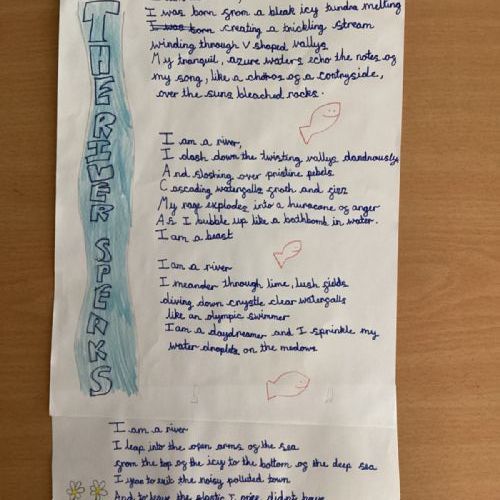 THE RIVER SPEAKS
I was born from a bleak icy tundra melting
creating a trickling stream
winding through V shaped vallys
My tranquil, azure waters echo the notes of
my song, like a choros of a contryside,
over the suns bleached rocks.
I am a river,
I dash down the twisting vallys
And sloshing over pristine pebels
Cascading waterfalls froth and fizz
My rage explodes into a huracane of anger
As I bubble up like a bathbomb in water.
I am a beast
I am a river
I meander through lime, lush fields
diving down crystle clear waterfalls
like an olympic swimmer
I am a daydreamer and I sprinkle my
water droplets on the medows.
I am a river
I leap into the open arms of the sea
from the top of the icy to the bottom of the deep sea
I to exit the noisy polluted town
And to leave the plastic I didn't have